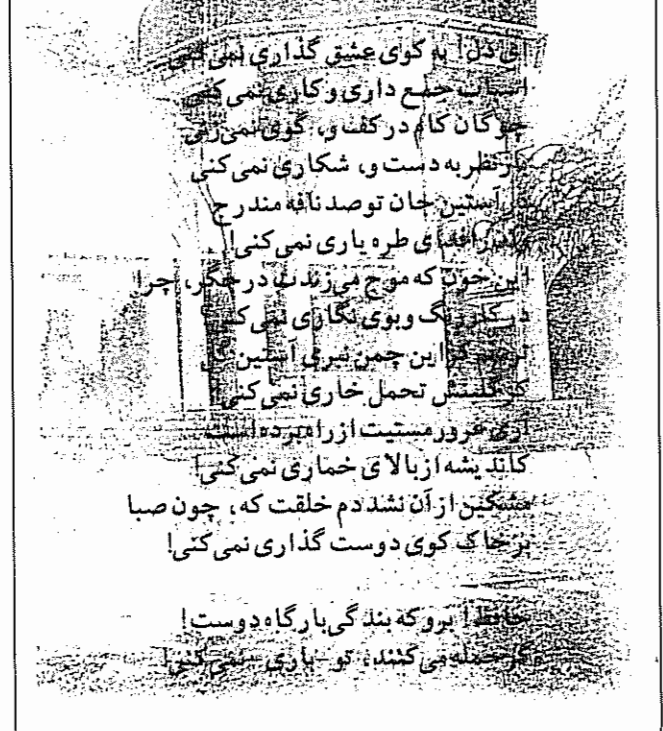 ای دل! به کوی عشق گذاری نمی‌کنی
اسباب جمع داری و کاری نمی‌کنی
چوگان کام در کف و، گوی نمی‌زنی
باز نظر به دست و، شکاری نمی‌کنی
در آستین جان تو صد نافه مندرج
طره یاری نمی‌کنی!
این خون که موج می‌زندت در جگر، چرا
در کار رنگ و بوی نگاری نمی‌کنی؟
این چمن نبری آستین گل
کز گلبنش تحمل خاری نمی‌کنی!
آری غرور مستیت از راه برده است
کاندیشه از بالای خماری نمی‌کنی!
مشکین از آن نشد دم خلقت که، چون صبا
بر خاک کوی دوست گذاری نمی‌کنی!
حافظ! برو که بندگی بارگاه دوست!
گر جمله می‌کنند، تو - باری - نمی‌کنی!